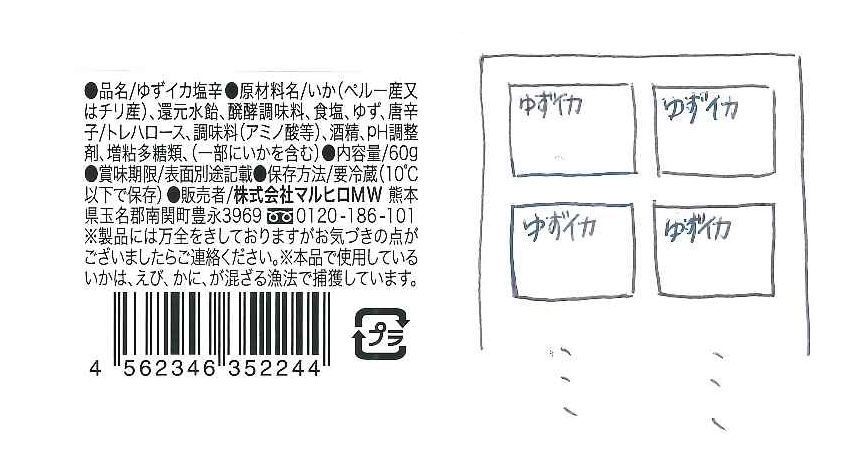 ●品名/ゆずイカ塩辛●原材料名/いか(ペルー産又
はチリ産)、還元水飴、醗酵調味料、食塩、ゆず、唐辛
子/トレハロース、調味料(アミノ酸等)、酒精、pH調整
剤、増粘多糖類、(一部にいかを含む)●内容量/60g
●賞味期限/表面別途記載●保存方法/要冷蔵(10℃
以下で保存)●販売者/株式会社マルヒロMW 熊本
県玉名郡南関町豊永3969 0120-186-101
※製品には万全をきしておりますがお気づきの点が
ございましたらご連絡ください。※本品で使用している
いかは、えび、かに、が混ざる漁法で捕獲しています。
4 562346 352244
プラ
ゆずイカ
ゆずイカ
ゆずイカ
ゆずイカ